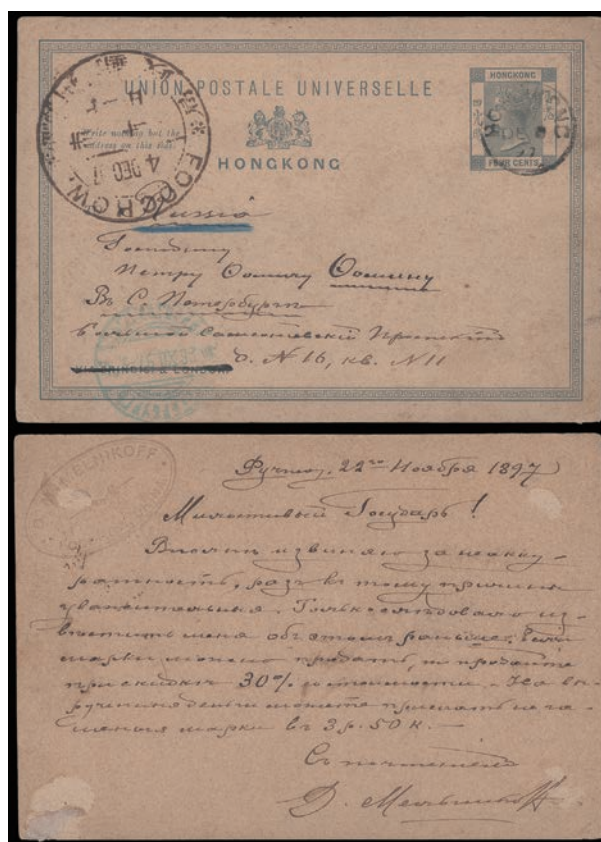 UNION POSTALE UNIVERSELLE
HONGKONG
Write nothing but the
address on this side.
HONGKONG
FOOCHOW
4 DEC 97
HONGKONG
FOUR CENTS
Russia
Господину
Петру Фомичу Фомину
Въ С. Петербургъ
Большой Сампсоніевскій Проспектъ
д. № 16, кв. № 11
VIA BRINDISI & LONDON
MELNIKOFF
Фучжоу, 22го Ноября 1897
Милостивый Государь!
Вполнѣ извиняю за неакку-
ратность, разъ къ тому причины
уважительныя. Только слѣдовало из-
вѣстить меня объ этомъ раньше. Если
марки можно продать, то продайте
при скидкѣ 30% стоимости. На вы-
рученныя деньги можете прислать
марки въ 3 р. 50 к. —
Съ почтеніемъ
Д. Мельниковъ